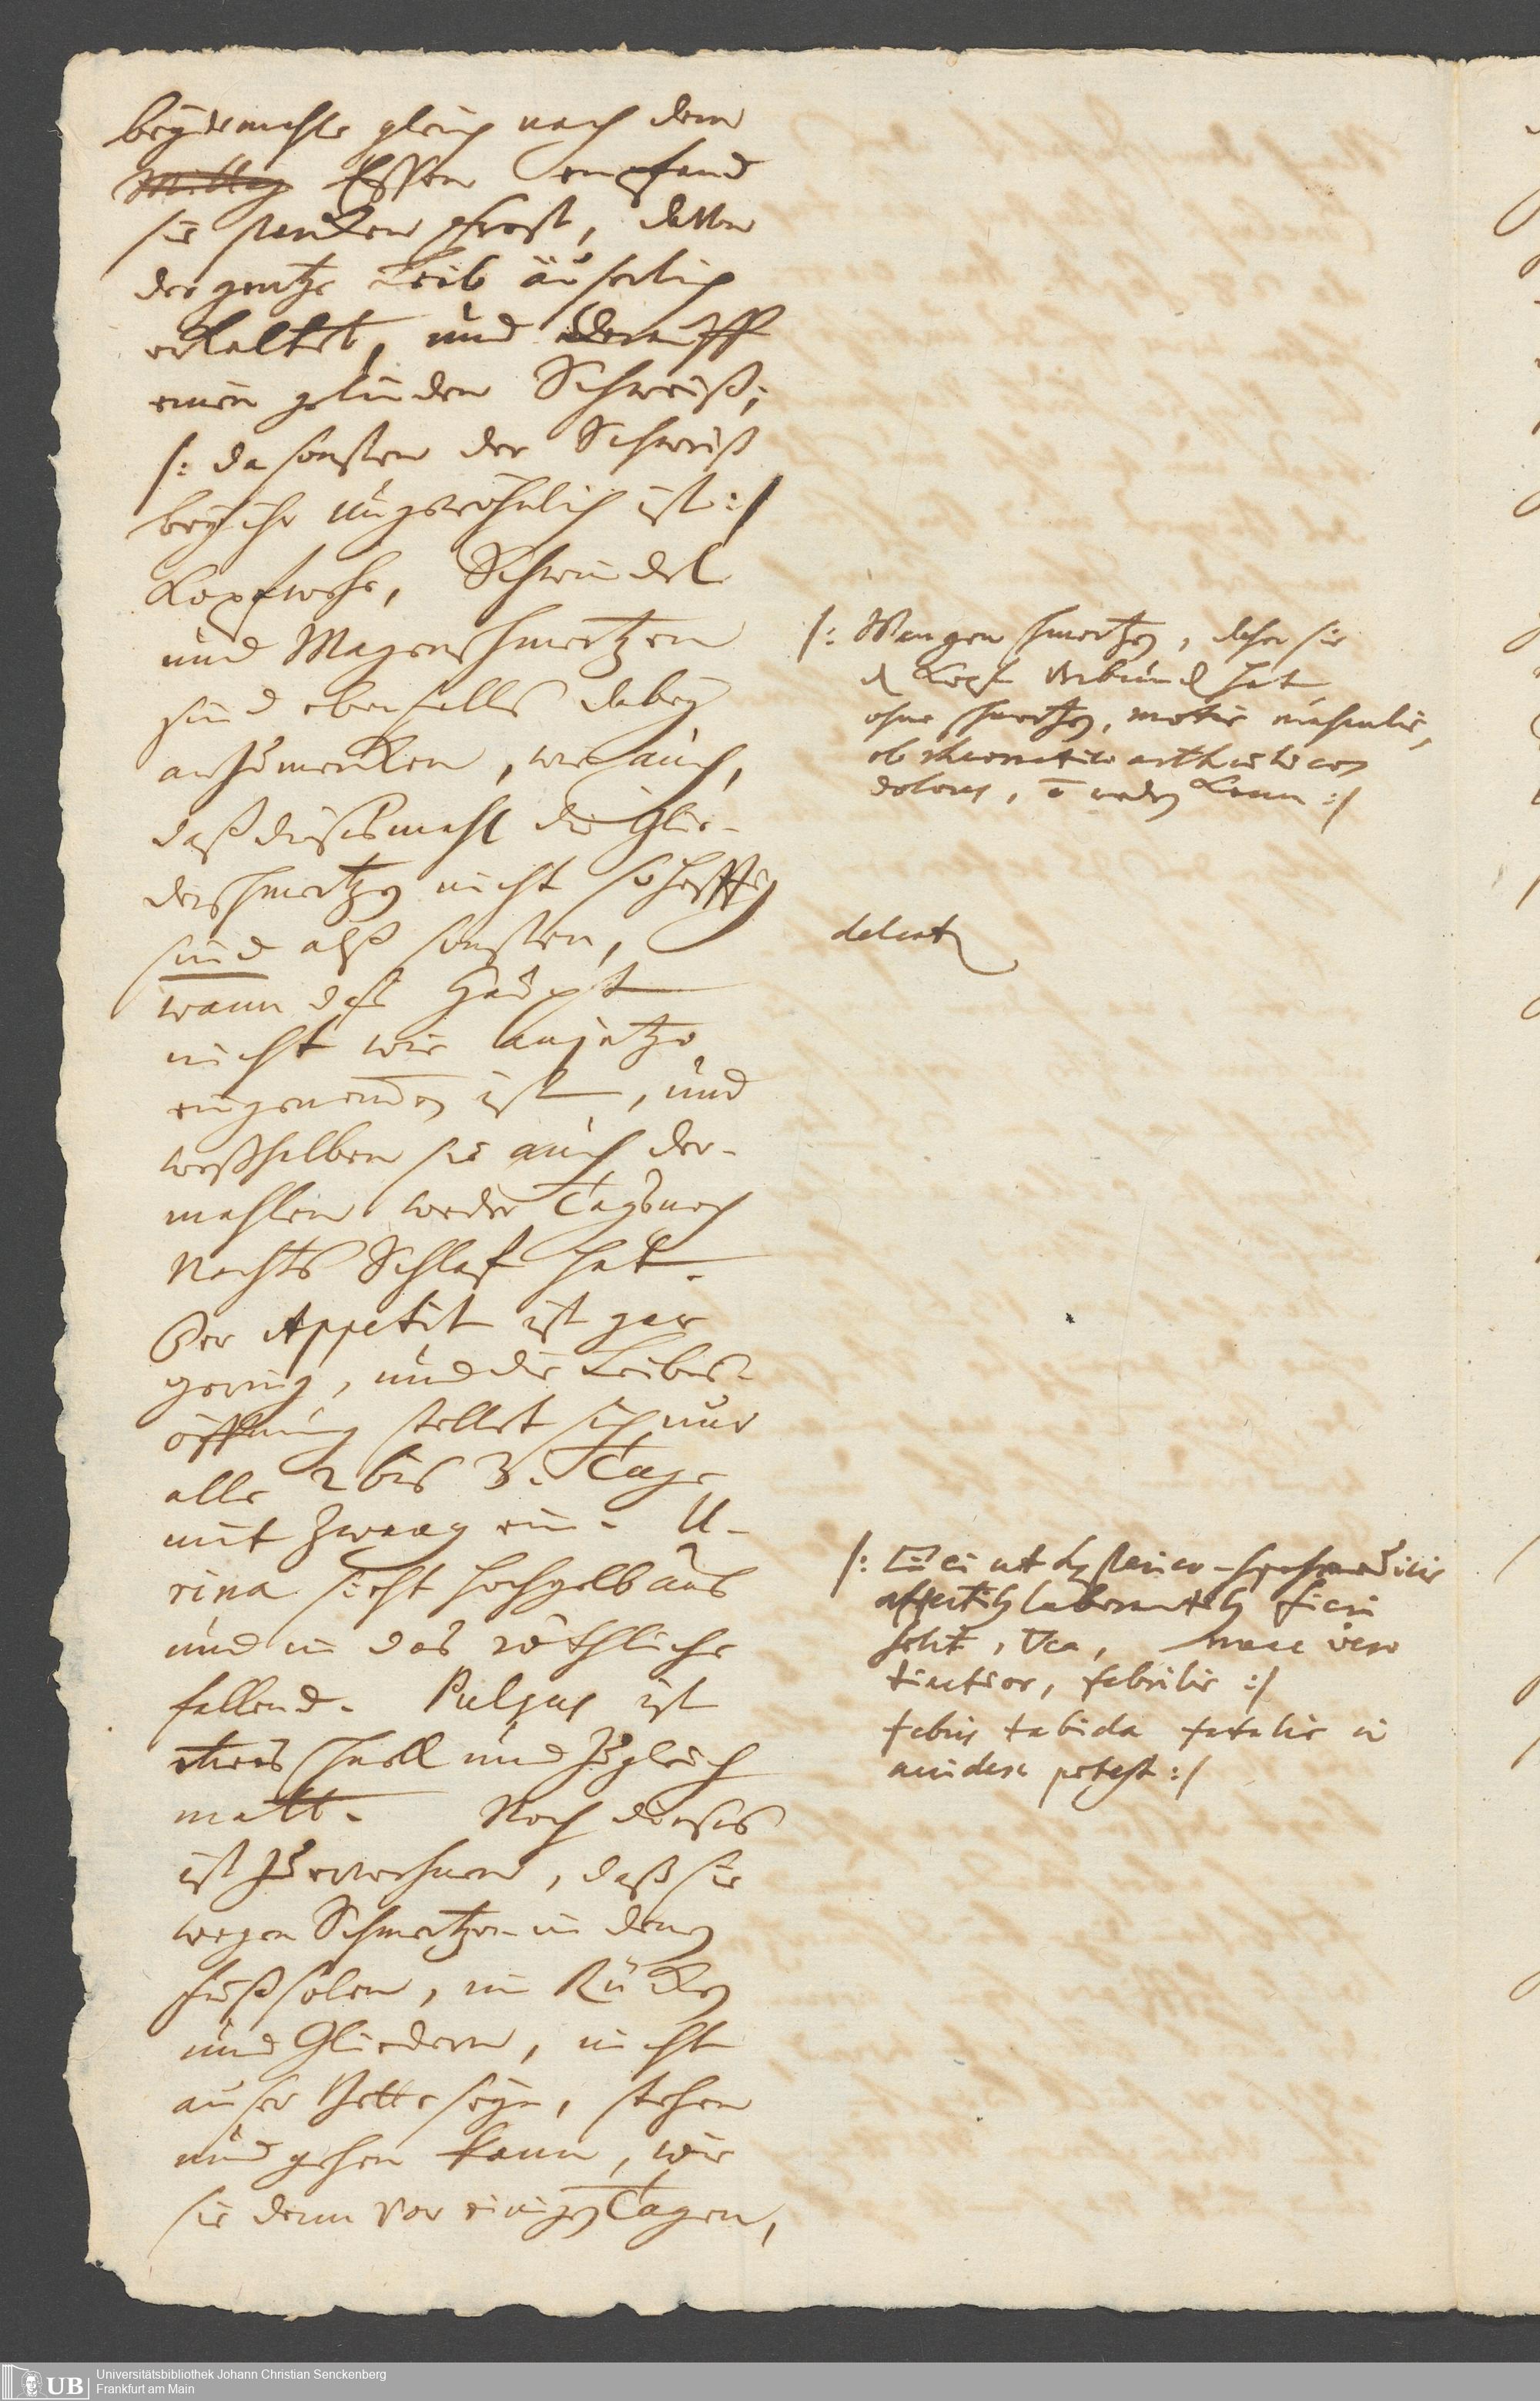 beydemahle gleich nach dem
Mittag Essen empfand
sie starken Frost, davon
der gantze Leib äuserlich
erkaltet, und darauff
einen gelinden Schweiß;
/: da sonsten der Schweiß
bey ihr ungewöhnlich ist :/
Kopfwehe, Schwindel
und Magenschmertzen
sind ebenfalls dabey
anzumerken, wie auch,
daß diesesmahl die Glie-
derschmertzen nicht so hefftig
sind alß sonsten,
wann das Haupt
nicht wie anjetzo
eingenommen ist, und
weßhalben sie auch der-
mahlen weder Tags noch
Nachts Schlaf hat.
Der Appetit ist gar
gering, und die Leibes-
öffnung stellet sich nur
alle 2 bis 3. Tage
mit Zwang ein. U-
rina sieht hochgelb aus
und in das röthliche
fallend. Pulsus ist
etwas schnell und zugleich
matt. Noch dieses
ist zu erwehnen, daß sie
wegen Schmertzen in denen
Fußsolen, im Rücken
und Gliedern, nicht
auser Bette seyn, stehen
und gehen kann, wie
sie denn vor einigen Tagen,
/: Wangen schmertzen, daher sie
d Kopf verbund hat
ohne schmertzen, motus
ob rheumatico arthriticos
dolores, reden kann :/
deleat
/: ut hysterico-hypochondriacis
affectib laborantib fieri
solet, nunc vero
tinctior, febrilis :/
febris tabida fatalis ei
accidere potest :/
Universitätsbibliothek Johann Christian Senckenberg
Frankfurt am Main
UB